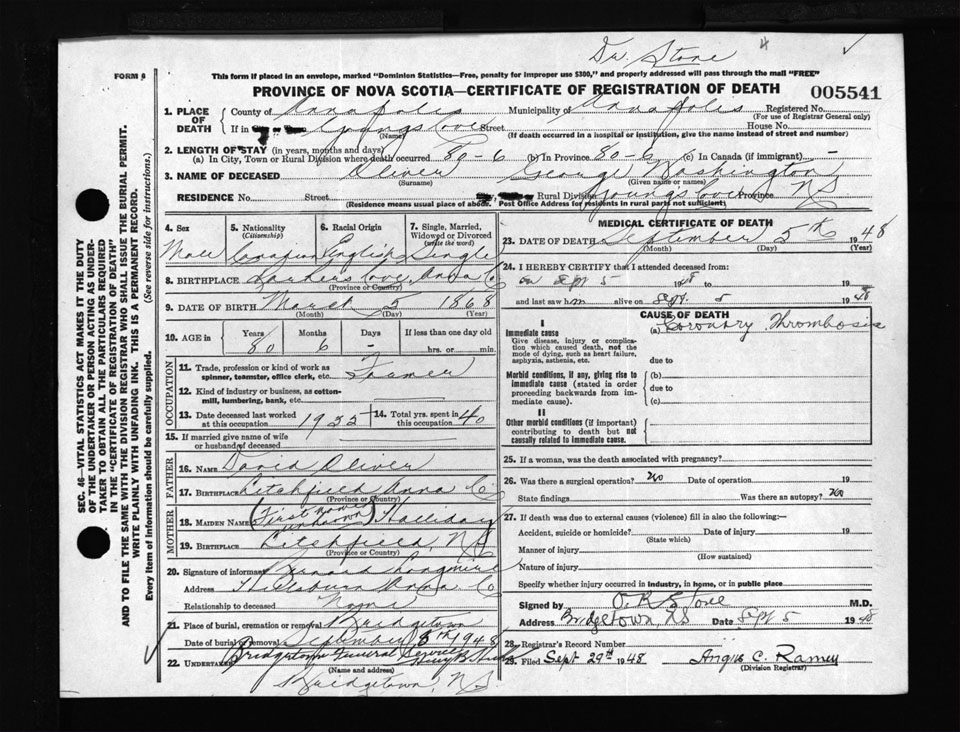 Dr. Stone
FORM 6
This form if placed in an envelope, marked "Dominion Statistics—Free, penalty for improper use $300," and properly addressed will pass through the mail "FREE"
PROVINCE OF NOVA SCOTIA—CERTIFICATE OF REGISTRATION OF DEATH
005541
1. PLACE OF DEATH
County of Annapolis Municipality of Annapolis Registered No.
(For use of Registrar General only)
If in Youngs Cove Street House No.
(Name) (If death occurred in a hospital or institution, give the name instead of street and number)
2. LENGTH OF STAY (in years, months and days)
(a) In City, Town or Rural Division where death occurred 80-6 (b) In Province 80-6 (c) In Canada (if immigrant) -
3. NAME OF DECEASED Oliver George Washington
(Surname) (Given name or names)
RESIDENCE No. Street Rural Division Youngs Cove Province NS
(Residence means usual place of abode. Post Office Address for residents in rural parts not sufficient)
4. Sex Male
5. Nationality (Citizenship) Canadian
6. Racial Origin English
7. Single, Married, Widowed or Divorced (write the word) Single
8. BIRTHPLACE Parkers Cove, Anna Co
(Province or Country)
9. DATE OF BIRTH March 5 1868
(Month) (Day) (Year)
10. AGE in Years 80 Months 6 Days - If less than one day old hrs. or min.
OCCUPATION
11. Trade, profession or kind of work as spinner, teamster, office clerk, etc. Farmer
12. Kind of industry or business, as cotton-mill, lumbering, bank, etc.
13. Date deceased last worked at this occupation 1935
14. Total yrs. spent in this occupation 40
15. If married give name of wife or husband of deceased
FATHER
16. NAME David Oliver
17. BIRTHPLACE Litchfield Anna Co
(Province or Country)
MOTHER
18. MAIDEN NAME (First name unknown) Halliday
19. BIRTHPLACE Litchfield, N.S.
(Province or Country)
20. Signature of informant Longmire
Address Hillsburn Anna Co
Relationship to deceased None
21. Place of burial, cremation or removal Bridgetown
Date of burial or removal September 8th 1948
22. Undertaker Bridgetown Funeral Service
(Name and address)
Bridgetown, NS.
MEDICAL CERTIFICATE OF DEATH
23. DATE OF DEATH September 5th 1948
(Month) (Day) (Year)
24. I HEREBY CERTIFY that I attended deceased from:
on Sept 5 1948 to 19
and last saw him alive on Sept. 5 1948
CAUSE OF DEATH
I
Immediate cause (a) Coronary Thrombosis
Give disease, injury or complication which caused death, not the mode of dying, such as heart failure, asphyxia, asthenia, etc.
due to
Morbid conditions, if any, giving rise to immediate cause (stated in order proceeding backwards from immediate cause).
(b)
due to
(c)
II
Other morbid conditions (if important) contributing to death but not causally related to immediate cause.
25. If a woman, was the death associated with pregnancy?
26. Was there a surgical operation? No Date of operation 19
State findings Was there an autopsy? No
27. If death was due to external causes (violence) fill in also the following:—
Accident, suicide or homicide? Date of injury 19
(State which)
Manner of injury
(How sustained)
Nature of injury
Specify whether injury occurred in industry, in home, or in public place
Signed by Stone M.D.
Address Bridgetown, NS Date Sept 5 1948
28. Registrar's Record Number
29. Filed Sept 29th 1948 Angus C. Ramey
(Division Registrar)
SEC. 46—VITAL STATISTICS ACT MAKES IT THE DUTY
OF THE UNDERTAKER OR PERSON ACTING AS UNDER-
TAKER TO OBTAIN ALL THE PARTICULARS REQUIRED
IN THE "CERTIFICATE OF REGISTRATION OF DEATH"
AND TO FILE THE SAME WITH THE DIVISION REGISTRAR WHO SHALL ISSUE THE BURIAL PERMIT.
WRITE PLAINLY WITH UNFADING INK. THIS IS A PERMANENT RECORD.
Every item of information should be carefully supplied. (See reverse side for instructions.)